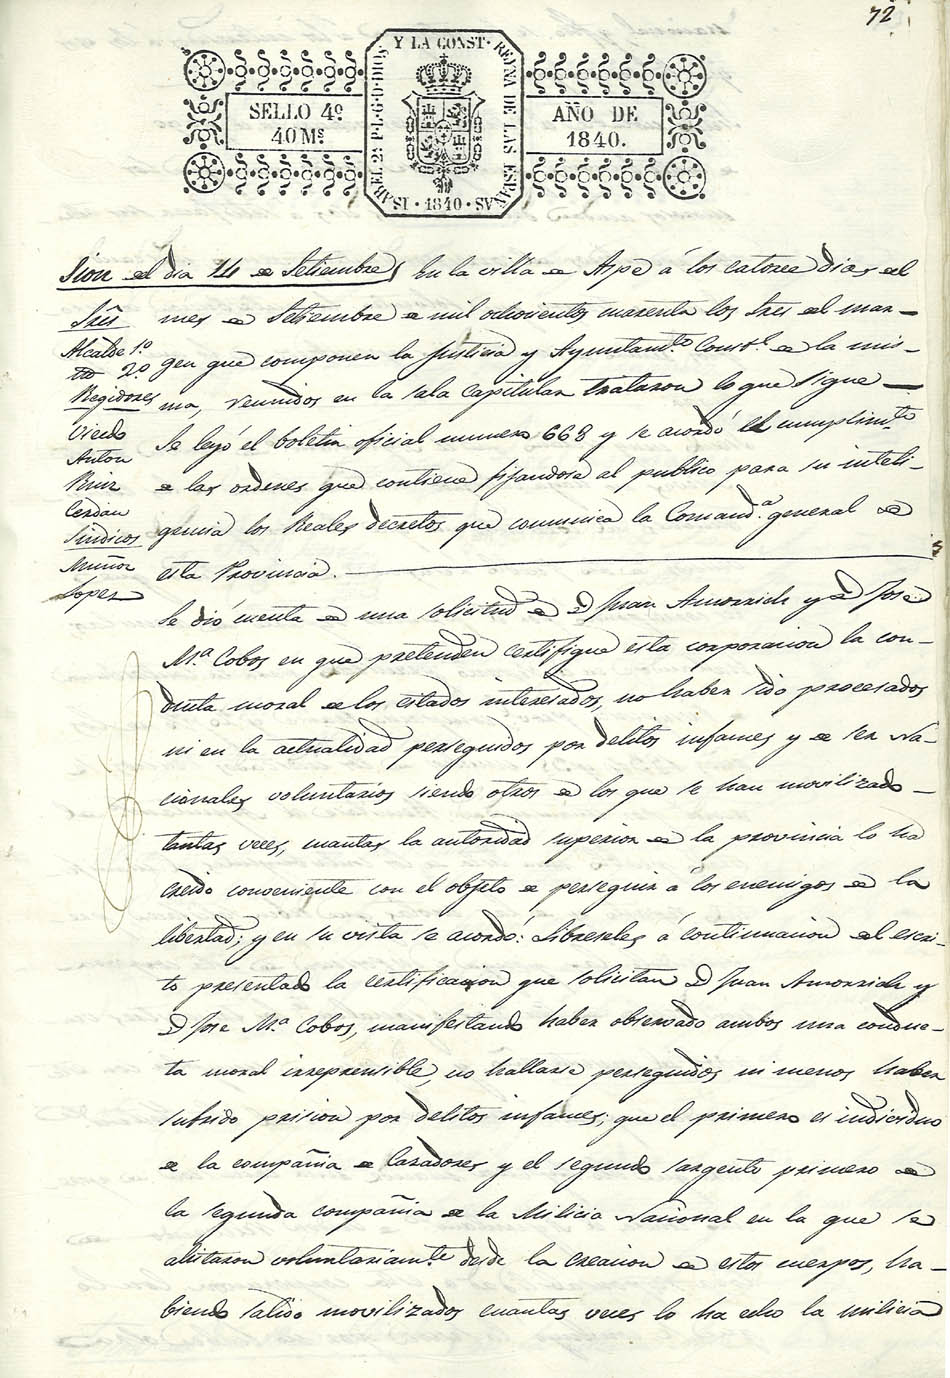 72
Y LA CONST. REYNA DE LAS ESPAÑAS
ISABEL 2ª P.L.G.D.DIOS
· 1840 ·
SELLO 4º
40 Ms.
AÑO DE
1840.
Sion del dia 14 de Setiembre
Sres
Alcalde 1º
2º
Regidores
Oviedo
Anton
Ruiz
Cerdan
Sindicos
Muñoz
Lopez
En la villa de Aspe á los catorce dias del
mes de Setiembre de mil ochocientos cuarenta los Sres del mar-
gen que componen la Justicia y Ayuntamto. Constl. de la mis-
ma, reunidos en la sala Capitular trataron lo que sigue
Se leyó el boletin oficial numero 668 y se acordó el cumplimto
de las ordenes que contiene fijandose al publico para su inteli-
gencia los Reales decretos que comunica la Comandª. general de
esta Provincia.
Se dió cuenta de una solicitud de D Juan Amorrich y D Jose
Mª Cobos en que pretenden certifique esta corporacion la con-
ducta moral de los citados interesados, no haber sido procesados
ni en la actualidad perseguidos por delitos infames y de ser Na-
cionales voluntarios siendo otros de los que se han movilizado
tantas veces, cuantas la autoridad superior de la provincia lo ha
creido conveniente con el objeto de perseguir á los enemigos de la
libertad; y en su vista se acordó: Libreseles á continuacion del escri-
to presentado la certificacion que solicitan D Juan Amorrich y
D Jose Mª Cobos, manifestando haber observado ambos una conduc-
ta moral irreprensible, no hallarse perseguidos ni menos haber
sufrido prision por delitos infames; que el primero es individuo
de la compañia de Cazadores y el segundo sargento primero de
la segunda compañia de la Milicia Nacional en la que se
alistaron voluntariamte. desde la creacion de estos cuerpos, ha-
biendo salido movilizados cuantas veces lo ha echo la milicia